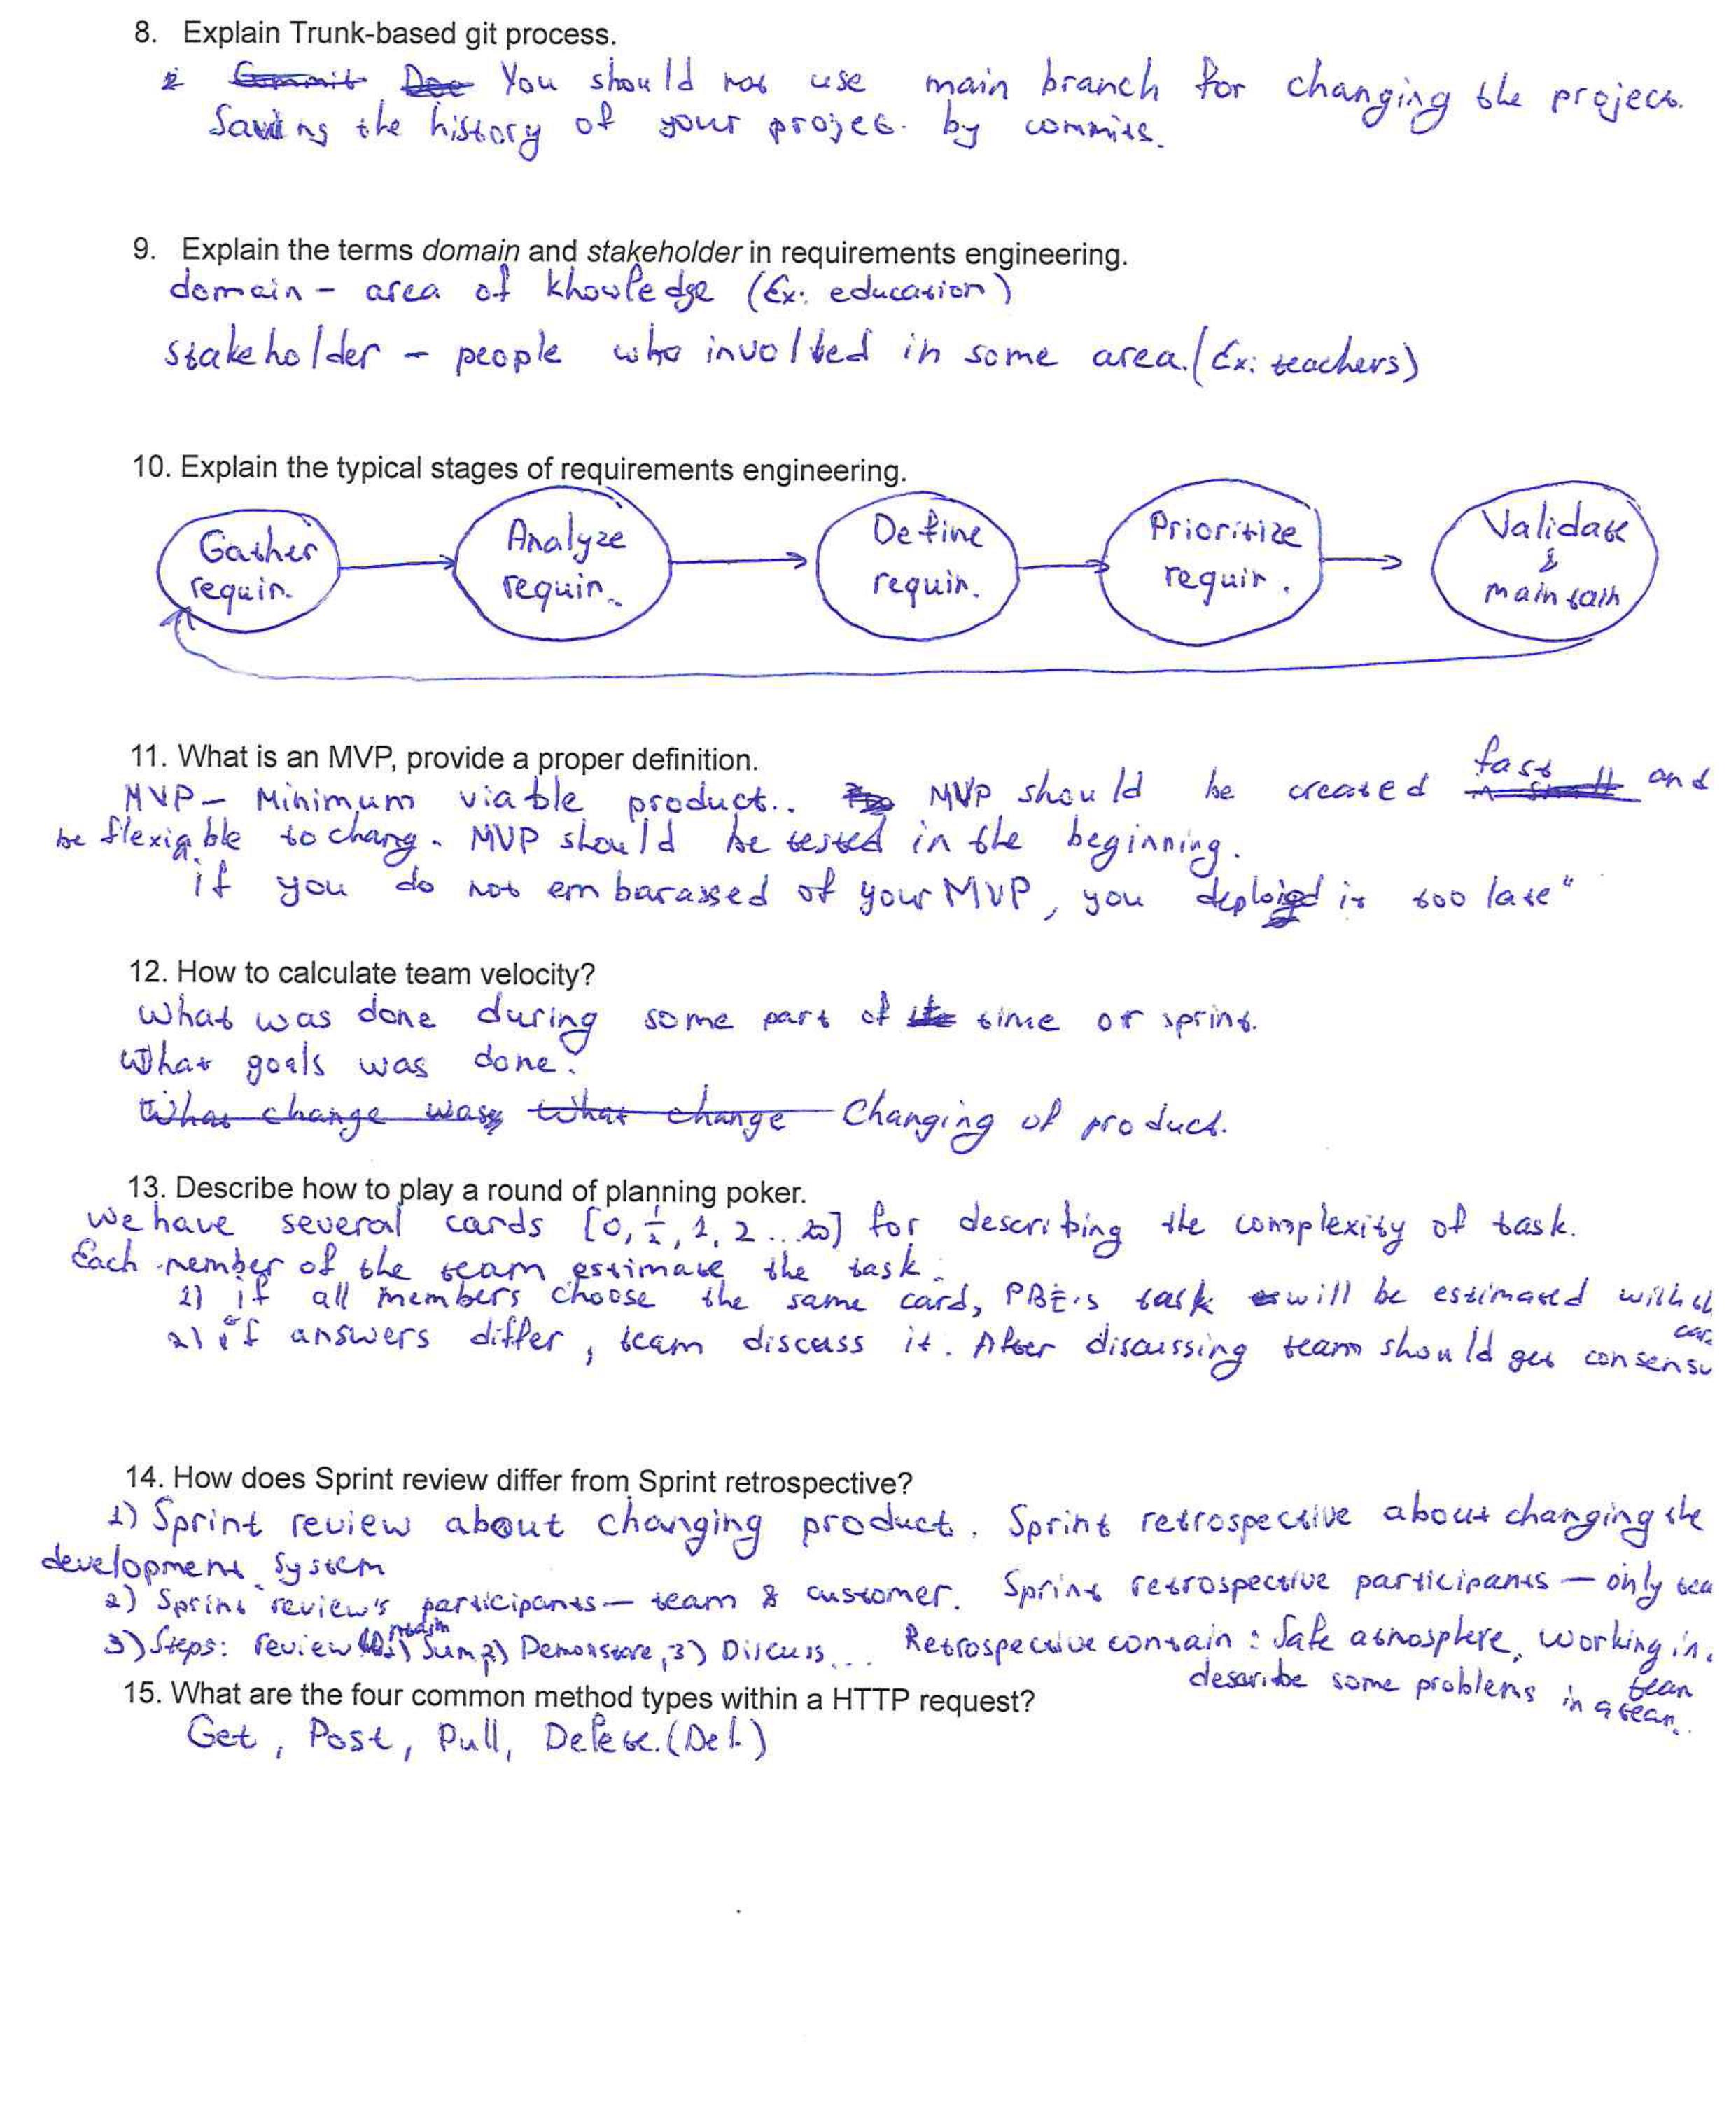 8. Explain Trunk-based git process.
You should not use main branch for changing the project.
Saving the history of your projec. by commits.
9. Explain the terms domain and stakeholder in requirements engineering.
domain - area of khowledge (Ex: education)
stakeholder - people who involved in some area. (Ex: teachers)
10. Explain the typical stages of requirements engineering.
Gather requir.
Analyze requir.
Define requir.
Prioritize requir.
Validate & maintain
11. What is an MVP, provide a proper definition.
MVP - Minimum viable product.. MVP should be created fast and
be flexig ble to chang. MVP should be tested in the beginning.
"if you do not embarassed of your MVP, you deploied it too late"
12. How to calculate team velocity?
What was done during some part of time or sprint.
What goals was done.
What change was What change Changing of product.
13. Describe how to play a round of planning poker.
We have several cards [0, 1/2, 1, 2 ... ∞] for describing the complexity of task.
Each member of the team estimate the task.
1) if all members choose the same card, PBI's task will be estimated with
2) if answers differ, team discuss it. After discussing team should get consensu
14. How does Sprint review differ from Sprint retrospective?
1) Sprint review about changing product. Sprint retrospective about changing the
development system
2) Sprint review's participants - team & customer. Sprint retrospective participants - only tea
3) Steps: review 1) Sum 2) Demonstare, 3) Discuss... Retrospective contain: Safe atmosphere, working in.
team
describe some problems in a team.
15. What are the four common method types within a HTTP request?
Get, Post, Pull, Delete. (Del.)